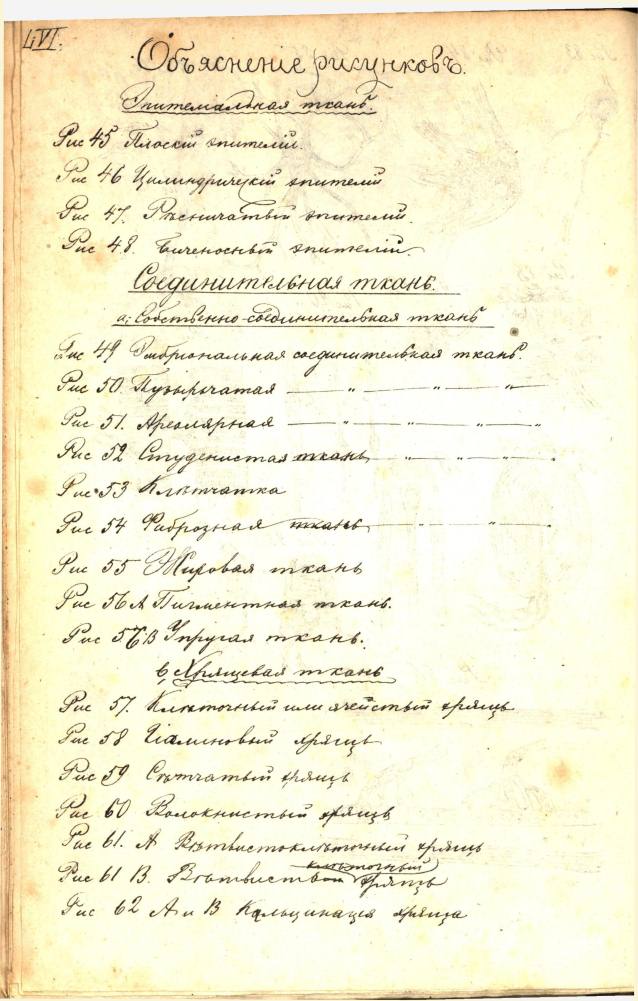 LVI.
Объясненіе рисунковъ.
Эпителіальная ткань.
Рис 45 Плоскій эпителій.
Рис 46 Цилиндрическій эпителій
Рис 47. Рѣсничатый эпителій.
Рис 48. Биченосный эпителій.
Соединительная ткань.
а, Собственно-соединительная ткань
Рис 49 Эмбріональная соединительная ткань.
Рис 50. Пузырчатая — " — " — "
Рис 51. Ареолярная — " — " — " — "
Рис 52 Студенистая ткань — " — " — " — "
Рис 53 Клѣтчатка
Рис 54 Фиброзная ткань — " — " — "
Рис 55 Жировая ткань
Рис 56 А Пигментная ткань.
Рис 56 В Упругая ткань.
b, Хрящевая ткань
Рис 57. Клѣточный или ячеистый хрящъ
Рис 58 Гіалиновый хрящъ
Рис 59 Сѣтчатый хрящъ
Рис 60 Волокнистый хрящъ
Рис 61. А Вѣтвистоклѣточный хрящъ
клѣточный
Рис 61 В. Вѣтвистый хрящъ
Рис 62 А и В Кальцинація хряща